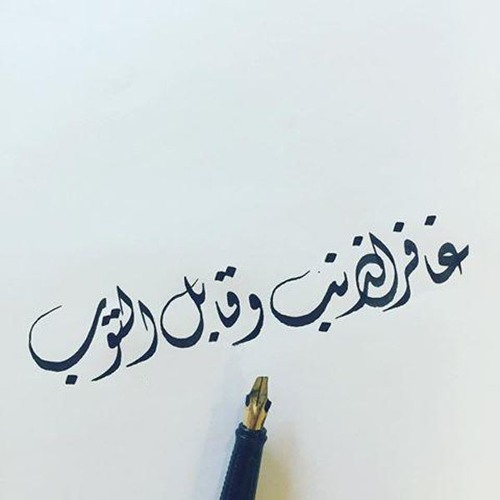 غافر الذنب وقابل التوب